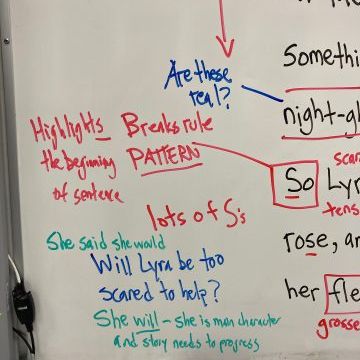 Somethi
Are these
real?
night-gh
Highlights Breaks rule
the beginning PATTERN
of sentence
scar
So Lyr
tens
lots of S's
rose, an
She said she would
Will Lyra be too
scared to help?
her fle
grosse
She will - she is main character
and story needs to progress